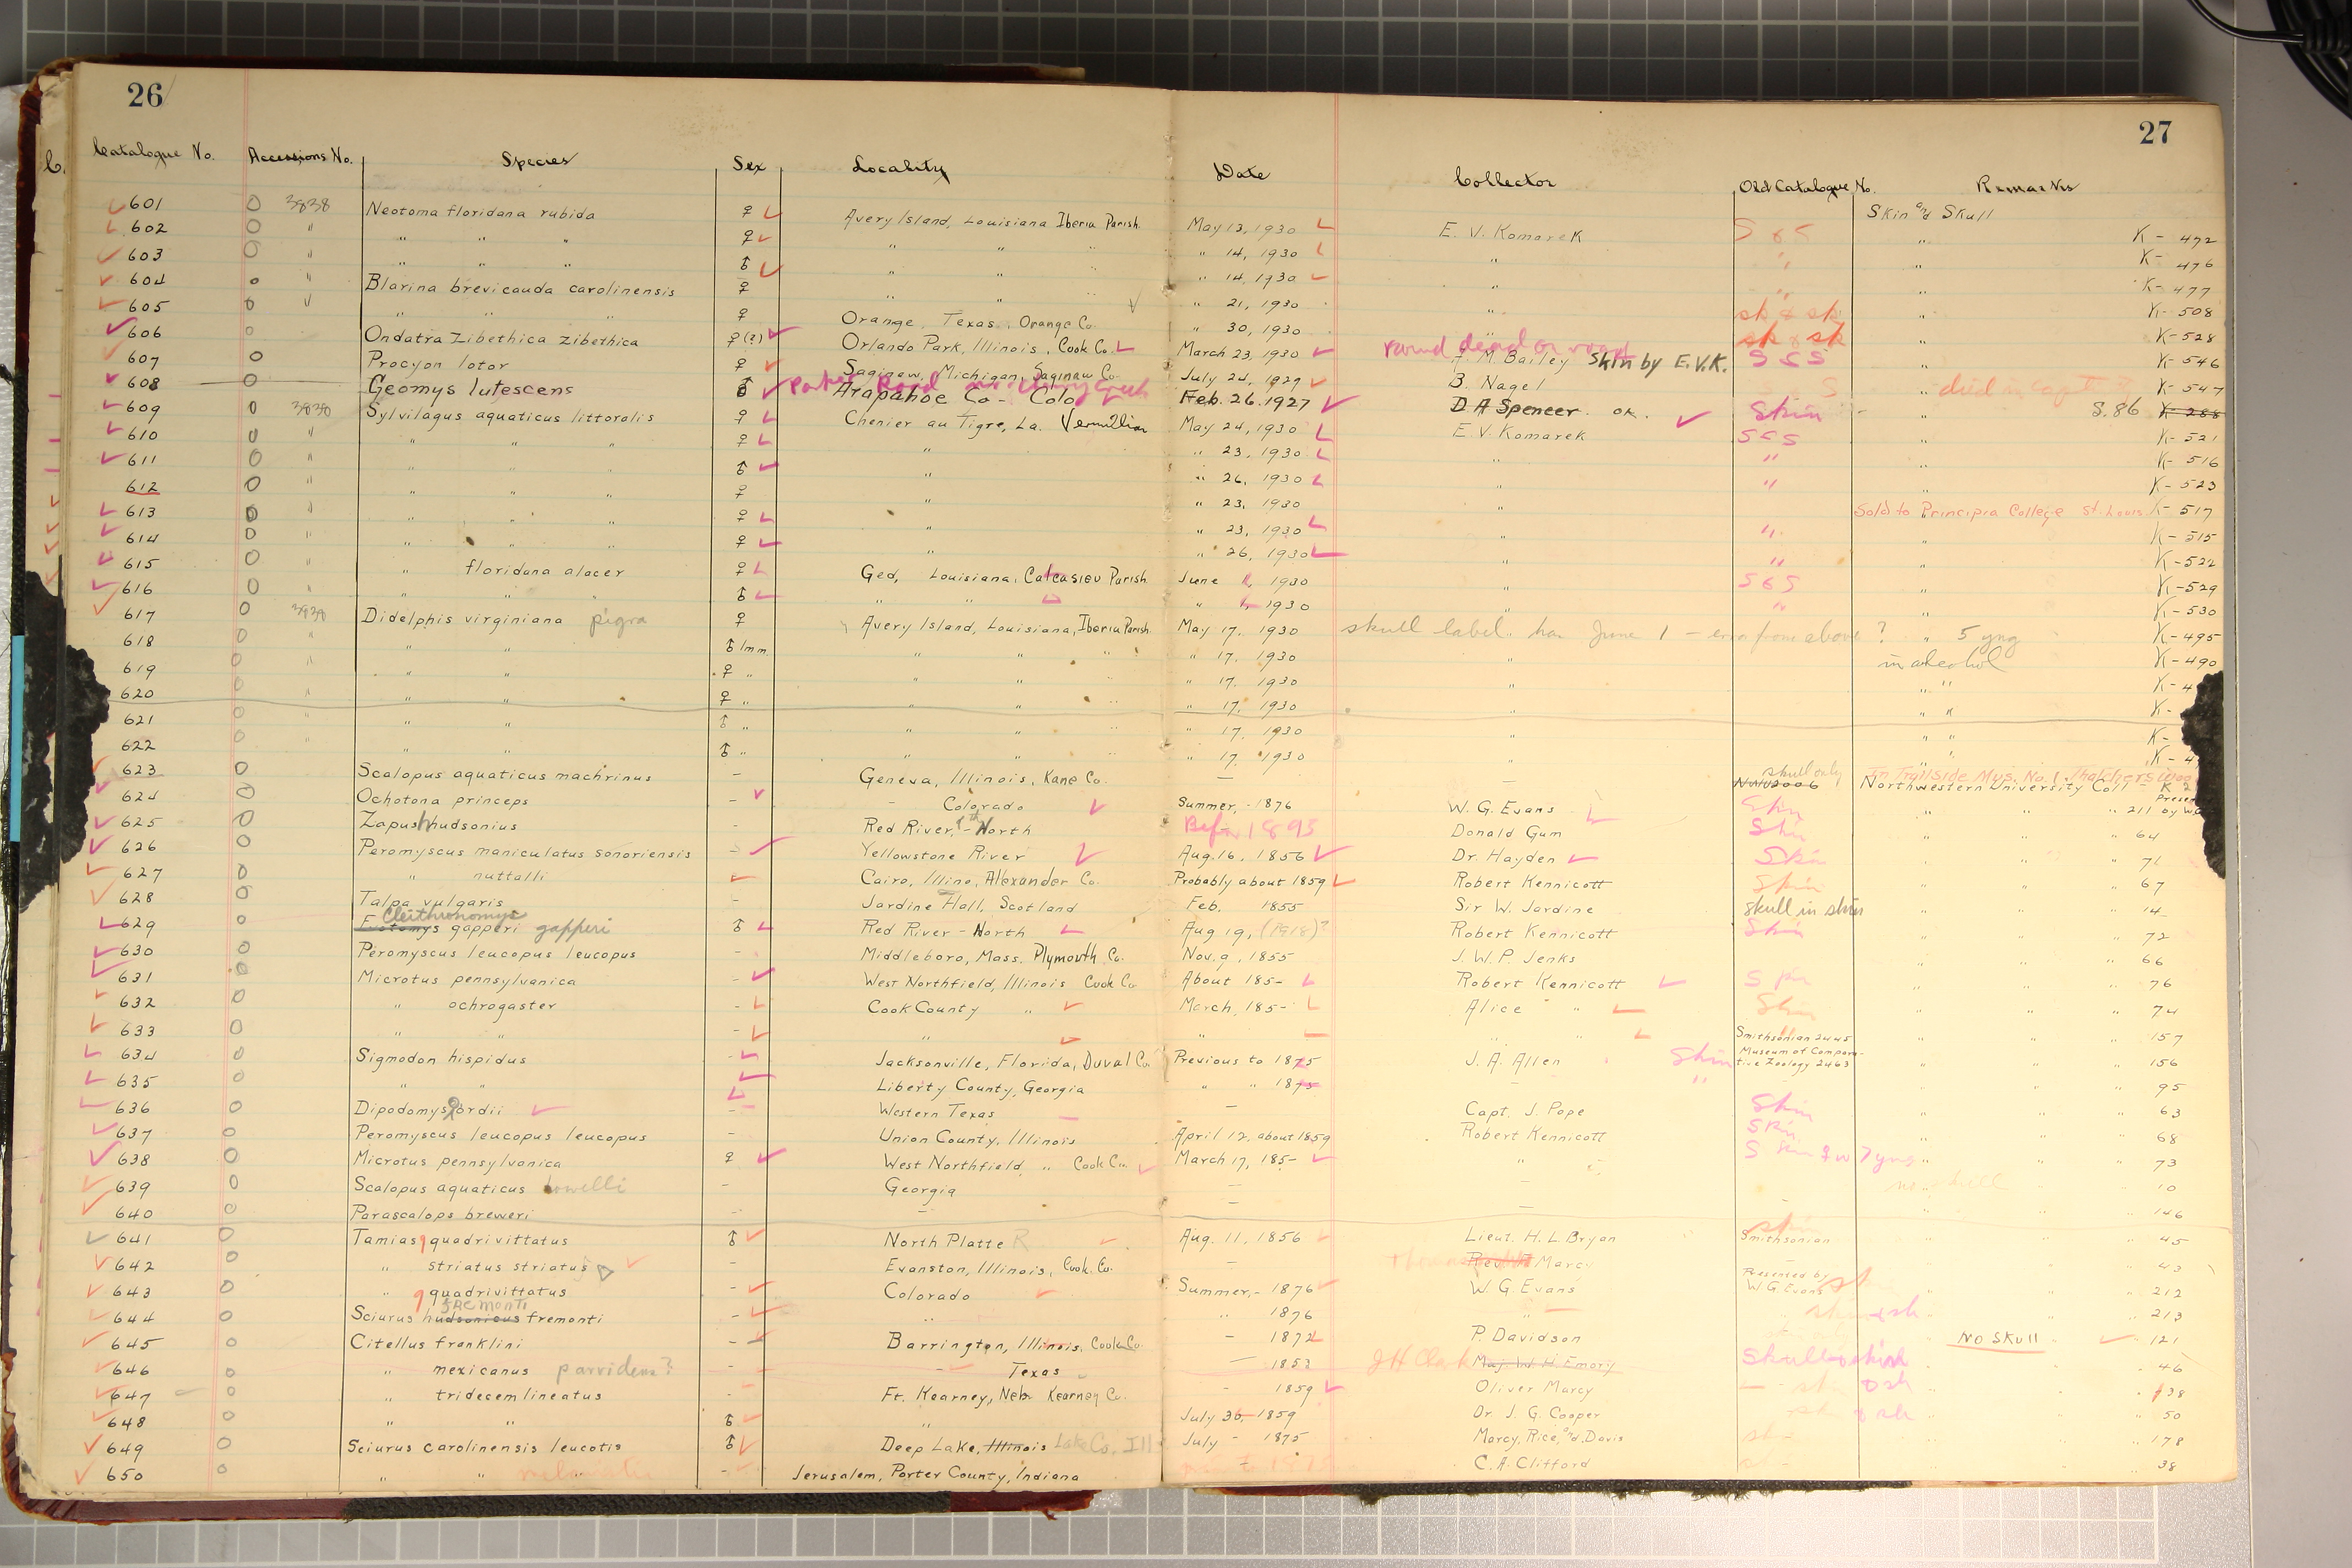 26
27
Catalogue No. Accessions No. Species Sex Locality Date Collector Old Catalogue No. Remarks
601 0 3838 Neotoma floridana rubida ♀ Avery Island, Louisiana Iberia Parish May 13, 1930 E. V. Komarek S & S Skin and Skull K-472
602 0 " " " " ♀ " " " " 14, 1930 " " " K-476
603 0 " " " " ♂ " " " " 14, 1930 " " " K-477
604 0 " Blarina brevicauda carolinensis ♀ " " " " 21, 1930 " sk & sk " K-508
605 0 " " " " ♀ Orange, Texas, Orange Co. " 30, 1930 " sk & sk " K-528
606 0 Ondatra zibethica zibethica ♀(?) Orlando Park, Illinois, Cook Co. March 23, 1930 found dead on road F. M. Bailey Skin by E.V.K. S & S " K-546
607 0 Procyon lotor ♀ Saginaw, Michigan, Saginaw Co. July 24, 1929 B. Nagel S " died in captivity K-547
608 0 Geomys lutescens ♂ Parker Road Cherry Creek Arapahoe Co- Colo Feb. 26. 1927 D A Spencer. OK. Skin - " S. 86 K-288
609 0 3838 Sylvilagus aquaticus littoralis ♀ Chenier au Tigre, La. Vermillion May 24, 1930 E. V. Komarek S & S " K-521
610 0 " " " " ♀ " " 23, 1930 " " " K-516
611 0 " " " " ♂ " " 26, 1930 " " " K-523
612 0 " " " " ♀ " " 23, 1930 " Sold to Principia College St. Louis K-517
613 0 " " " " ♀ " " 23, 1930 " " " K-515
614 0 " " " " ♀ " " 26, 1930 " " " K-522
615 0 " " floridana alacer ♀ Ged, Louisiana, Calcasieu Parish June 1, 1930 " S & S " K-529
616 0 " " " " ♂ " " " 1, 1930 " " " K-530
617 0 3838 Didelphis virginiana pigra ♀ Avery Island, Louisiana, Iberia Parish May 17, 1930 skull label has June 1 - error from above ? " 5 yng K-495
618 0 " " " ♂ Imm. " " " " 17, 1930 " in alcohol K-490
619 0 " " " ♀ " " " " " 17, 1930 " " " K-4
620 0 " " " ♀ " " " " " 17, 1930 " " " K-
621 0 " " " ♂ " " " " " 17, 1930 " " " K-
622 0 " " " ♂ " " " " " 17, 1930 " " K-4
623 0 Scalopus aquaticus machrinus - Geneva, Illinois, Kane Co. - - skull only In Trailside Mus. No. 1. Thatchers
624 0 Ochotona princeps - - Colorado Summer, - 1876 W. G. Evans Skin Northwestern University Coll - " 211
625 0 Zapus hudsonius - Red River, of th North Before 1893 Donald Gum Skin " " " 64
626 0 Peromyscus maniculatus sonoriensis - Yellowstone River Aug. 16, 1856 Dr. Hayden Skin " " " 71
627 0 " nuttalli - Cairo, Illino, Alexander Co. Probably about 1859 Robert Kennicott Skin " " " 67
628 0 Talpa vulgaris - Jardine Hall, Scotland Feb. 1855 Sir W. Jardine skull in skin " " " 14
629 0 Evotomys Clethrionomys gapperi gapperi ♂ Red River - North Aug 19, Robert Kennicott Skin " " " 72
630 0 Peromyscus leucopus leucopus - Middleboro, Mass. Plymouth Co. Nov. 9, 1855 J. W. P. Jenks " " " 66
631 0 Microtus pennsylvanica - West Northfield, Illinois Cook Co About 185- Robert Kennicott " " " 76
632 0 " ochrogaster - Cook County " March, 185- Alice " Skin " " " 74
633 0 " " - " " " Smithsonian 2445 " " " 157
634 0 Sigmodon hispidus - Jacksonville, Florida, Duval Co. Previous to 1875 J. A. Allen Skin Museum of Comparative Zoology 2463 " " " 156
635 0 " " - Liberty County, Georgia " " 1875 - " " " " 95
636 0 Dipodomys ordii - Western Texas - Capt. J. Pope Skin " " " 63
637 0 Peromyscus leucopus leucopus - Union County, Illinois April 12, about 1859 Robert Kennicott Skin " " " 68
638 0 Microtus pennsylvanica ♀ West Northfield " Cook Co. March 17, 185- " S Skin ♀ w 7 yng " " " 73
639 0 Scalopus aquaticus howelli - Georgia - - no skull " " 10
640 0 Parascalops breweri - - - - - " " " 146
641 0 Tamias quadrivittatus ♂ North Platte R Aug. 11, 1856 Lieut. H. L. Bryan skin Smithsonian " " " 45
642 0 " striatus striatus - Evanston, Illinois, Cook Co. - Marcy - " " " 43
643 0 " quadrivittatus - Colorado Summer, - 1876 W. G. Evans Presented by W. G. Evans " " " 212
644 0 Sciurus hudsonicus fremonti fremonti - " " 1876 " " " " 213
645 0 Citellus franklini - Barrington, Illinois, Cook Co. - 1872 P. Davidson NO SKULL " 121
646 0 " mexicanus parvidens? - - Texas - 1853 J H Clark Maj. W. H. Emory Skull & skin " " " 46
647 0 " tridecemlineatus - Ft. Kearney, Neb. Kearney Co. - 1859 Oliver Marcy " " " 138
648 0 " " ♂ " July 30, 1859 Dr J. G. Cooper " " " 50
649 0 Sciurus carolinensis leucotis ♂ Deep Lake, Illinois Lake Co. Ill July - 1875 Marcy, Rice, and Davis " " " 178
650 0 " " - Jerusalem, Porter County, Indiana C. A. Clifford " " " 38